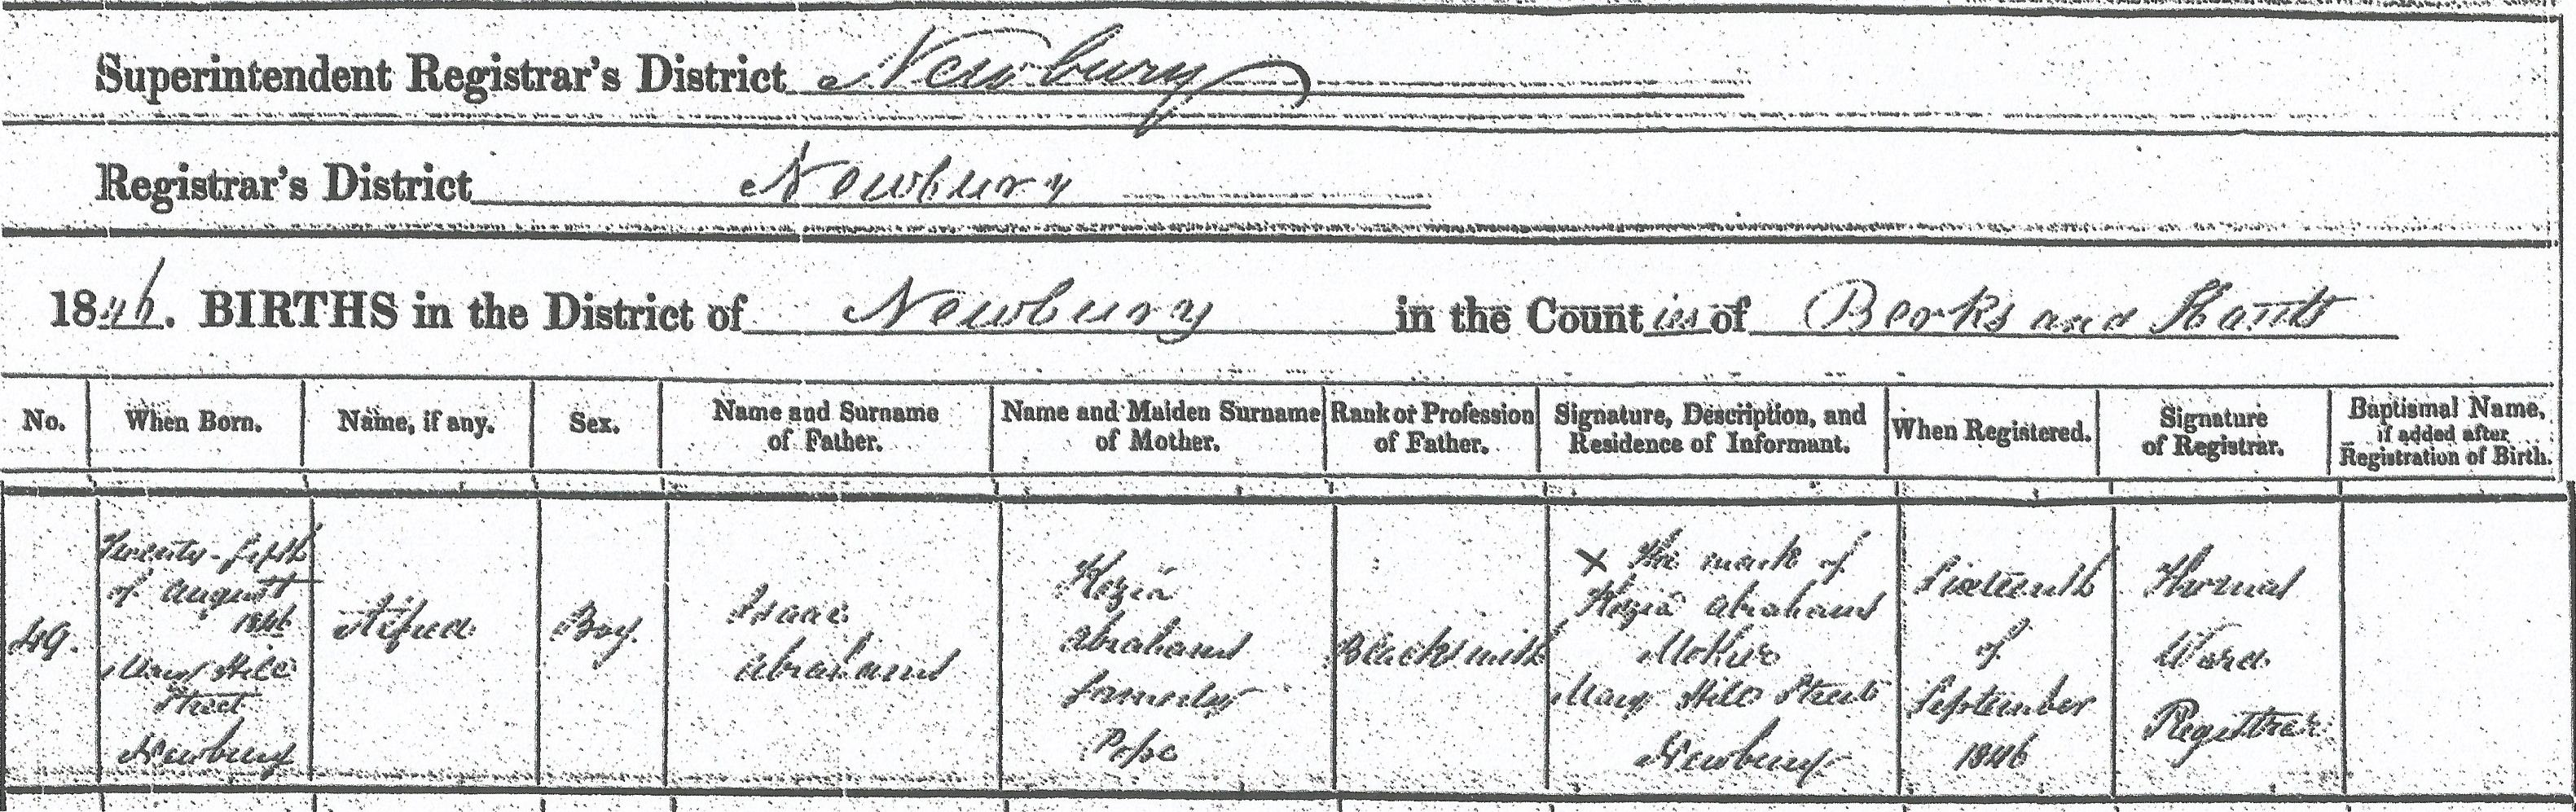 Superintendent Registrar's District Newbury
Registrar's District Newbury
1846. BIRTHS in the District of Newbury in the Counties of Berks and Hants
No.
When Born.
Name, if any.
Sex.
Name and Surname
of Father.
Name and Maiden Surname
of Mother.
Rank or Profession
of Father.
Signature, Description, and
Residence of Informant.
When Registered.
Signature
of Registrar.
Baptismal Name,
if added after
Registration of Birth.
49.
Twenty-fifth
of August
1846
Hill
Street
Newbury
Alfred
Boy.
Isaac
Abrahams
Kezia
Abrahams
formerly
Pope
Blacksmith
X The mark of
Kezia Abrahams
Mother
Hill Street
Newbury
Sixteenth
of
September
1846
Thomas
Ward
Registrar